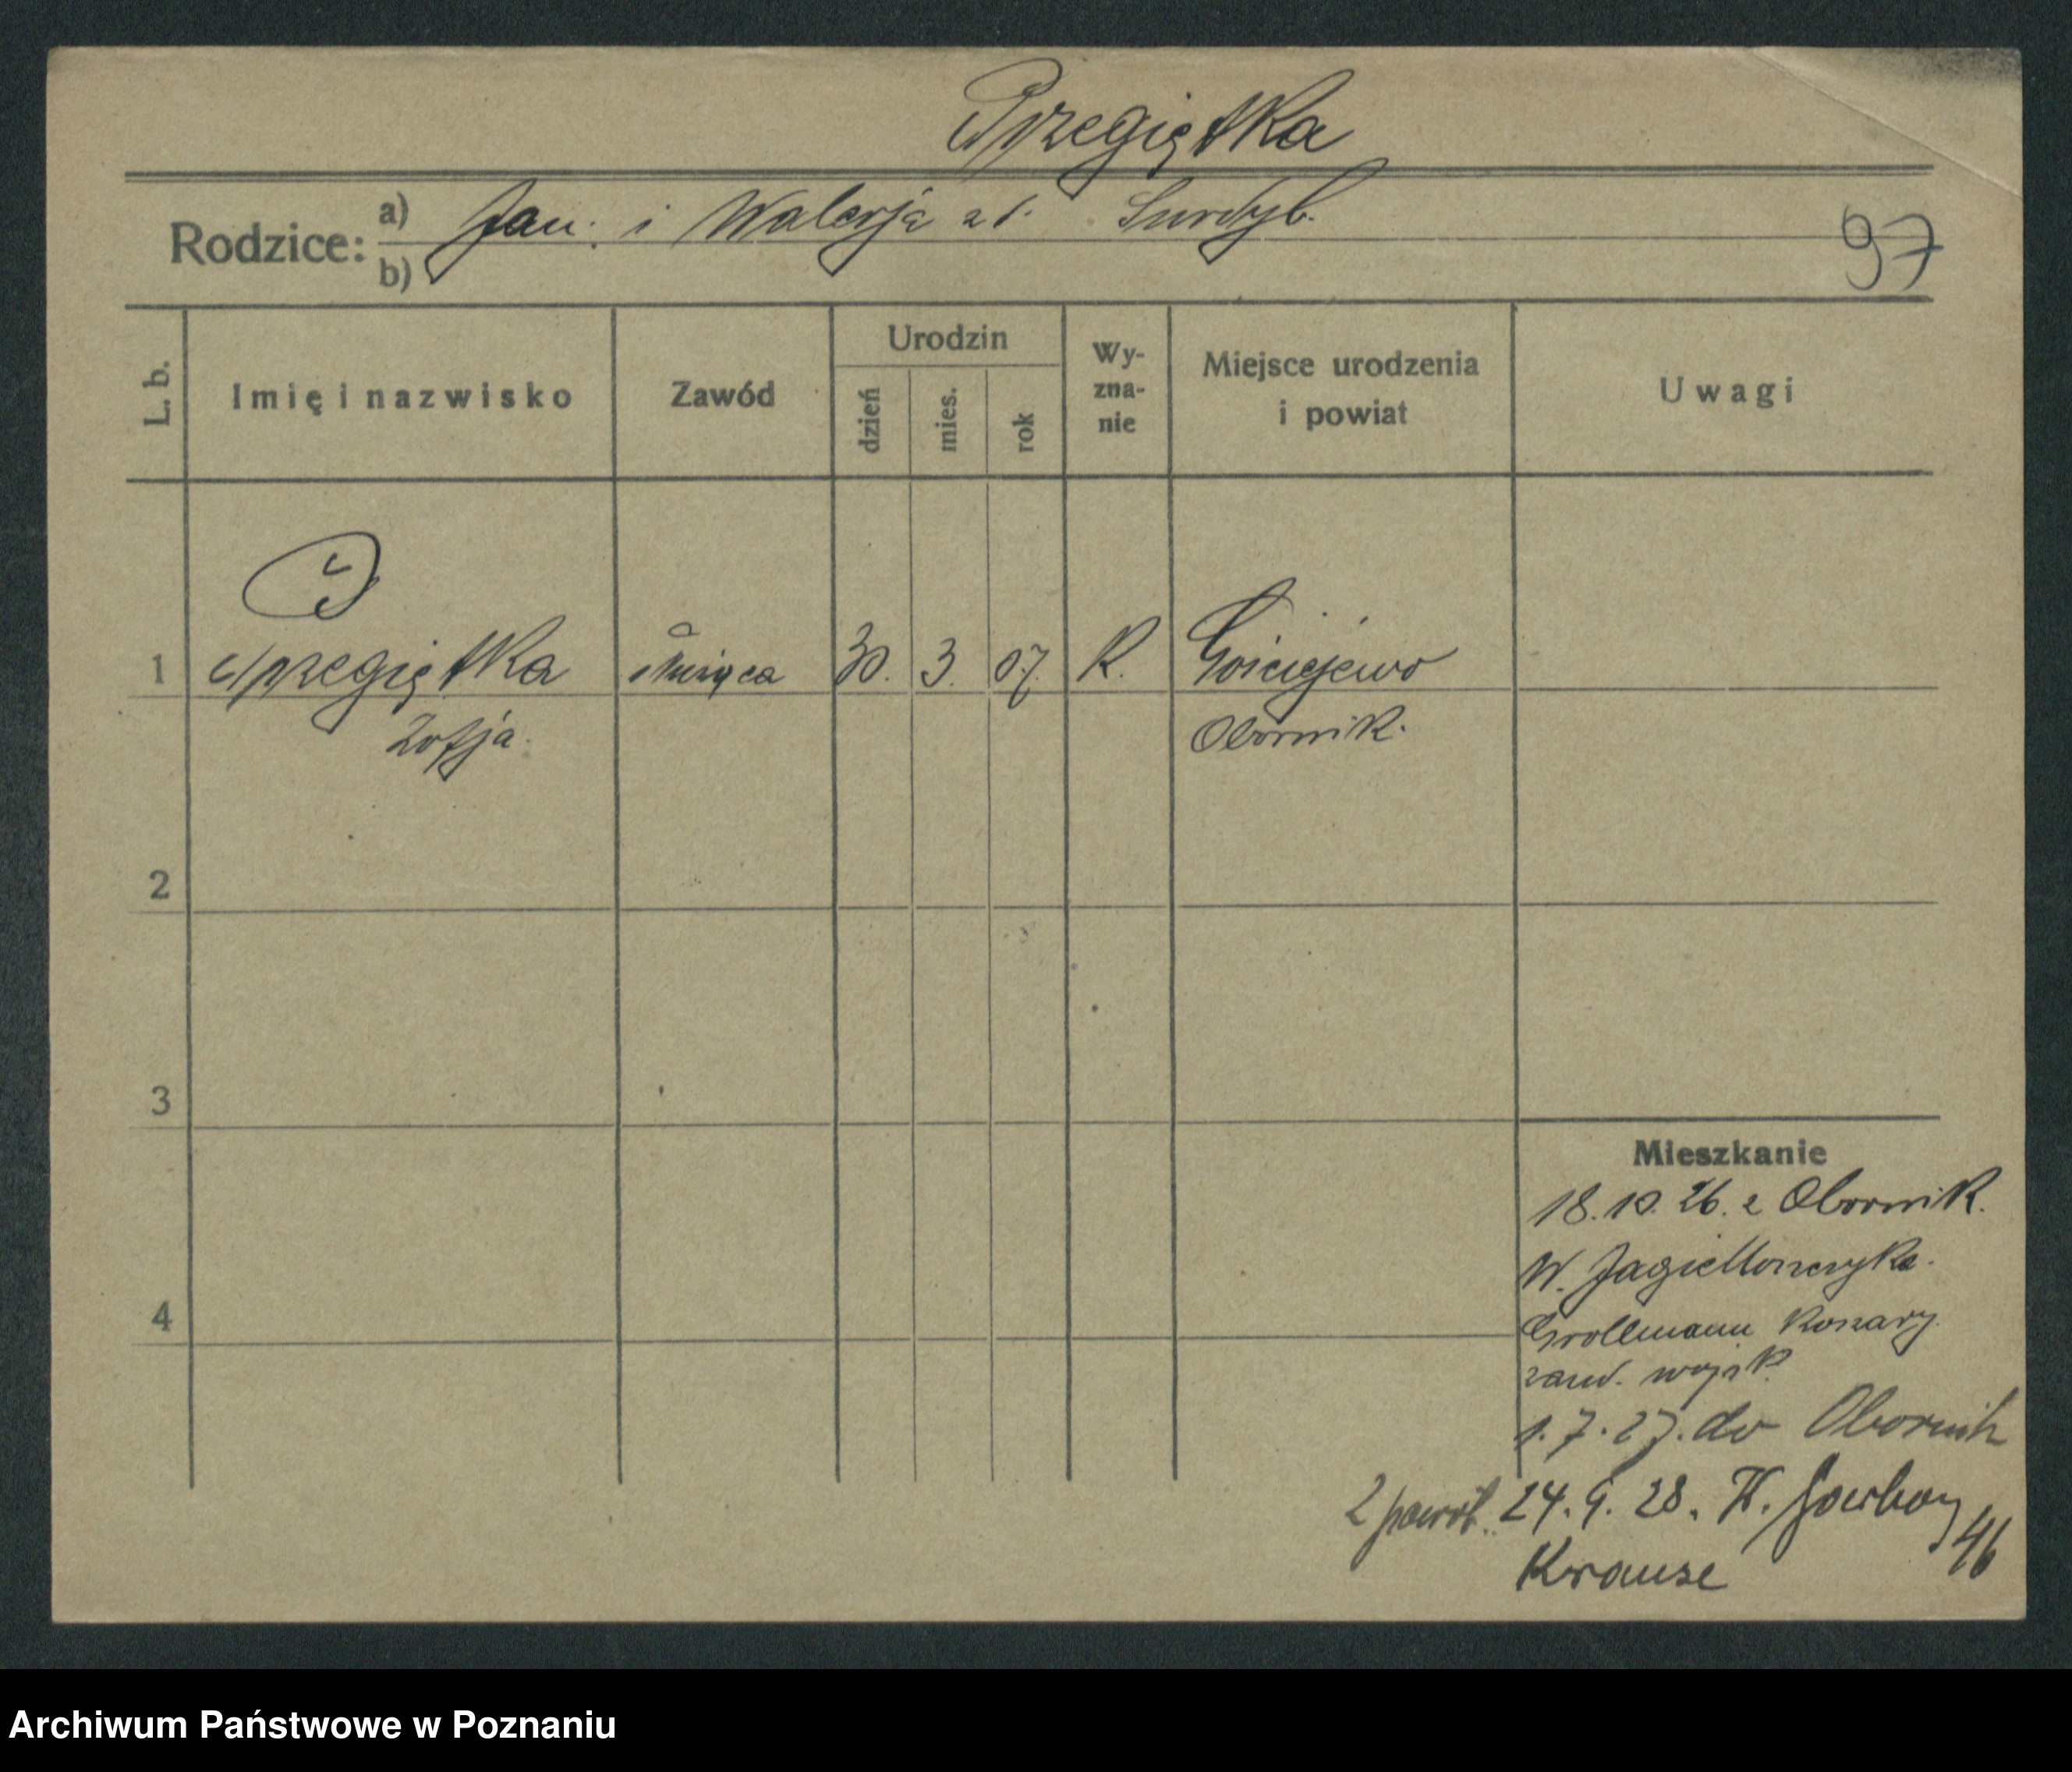 Przegiętka
Rodzice: a) Jan i Walerja z d. Surdyk.
b)
97
L. b.
Imię i nazwisko
Zawód
Urodzin
dzień
mies.
rok
Wy-
zna-
nie
Miejsce urodzenia
i powiat
Uwagi
1 Przegiętka służąca 30. 3. 07. K. Gościejewo
Zofja Obornik.
2
3
4
Mieszkanie
18.10.26. z Obornik.
W. Jagiellończyka.
Grollmann
1.7.27. do Obornik
24.9.28. W. Garbary 46
Krause